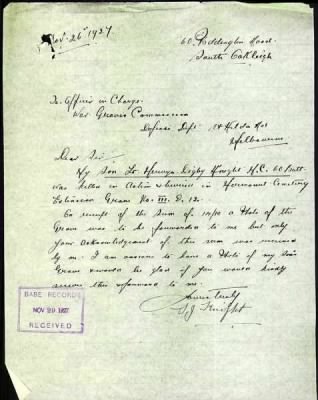 Nov. 26th 1927
60. Paddington Road.
South Oakleigh
To Officer in Charge.
War Graves Commission
Defence Dept. St Kilda Rd
Melbourne
Dear Sir
My Son Lt. Knight M.C. 60 Batt
was killed in Action & buried in Cemetery
Grave No. III. D. 12.
On receipt of the sum of a Photo of the
Grave was to be forwarded to me but only
your acknowledgment of this sum was received
by me. I am anxious to have a Photo of my Son's
Grave & would be glad if you would kindly
this forwarded to me.
Yours Truly
Knight
BASE RECORDS
NOV 29 1927
RECEIVED